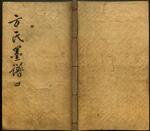 方氏墨譜 四